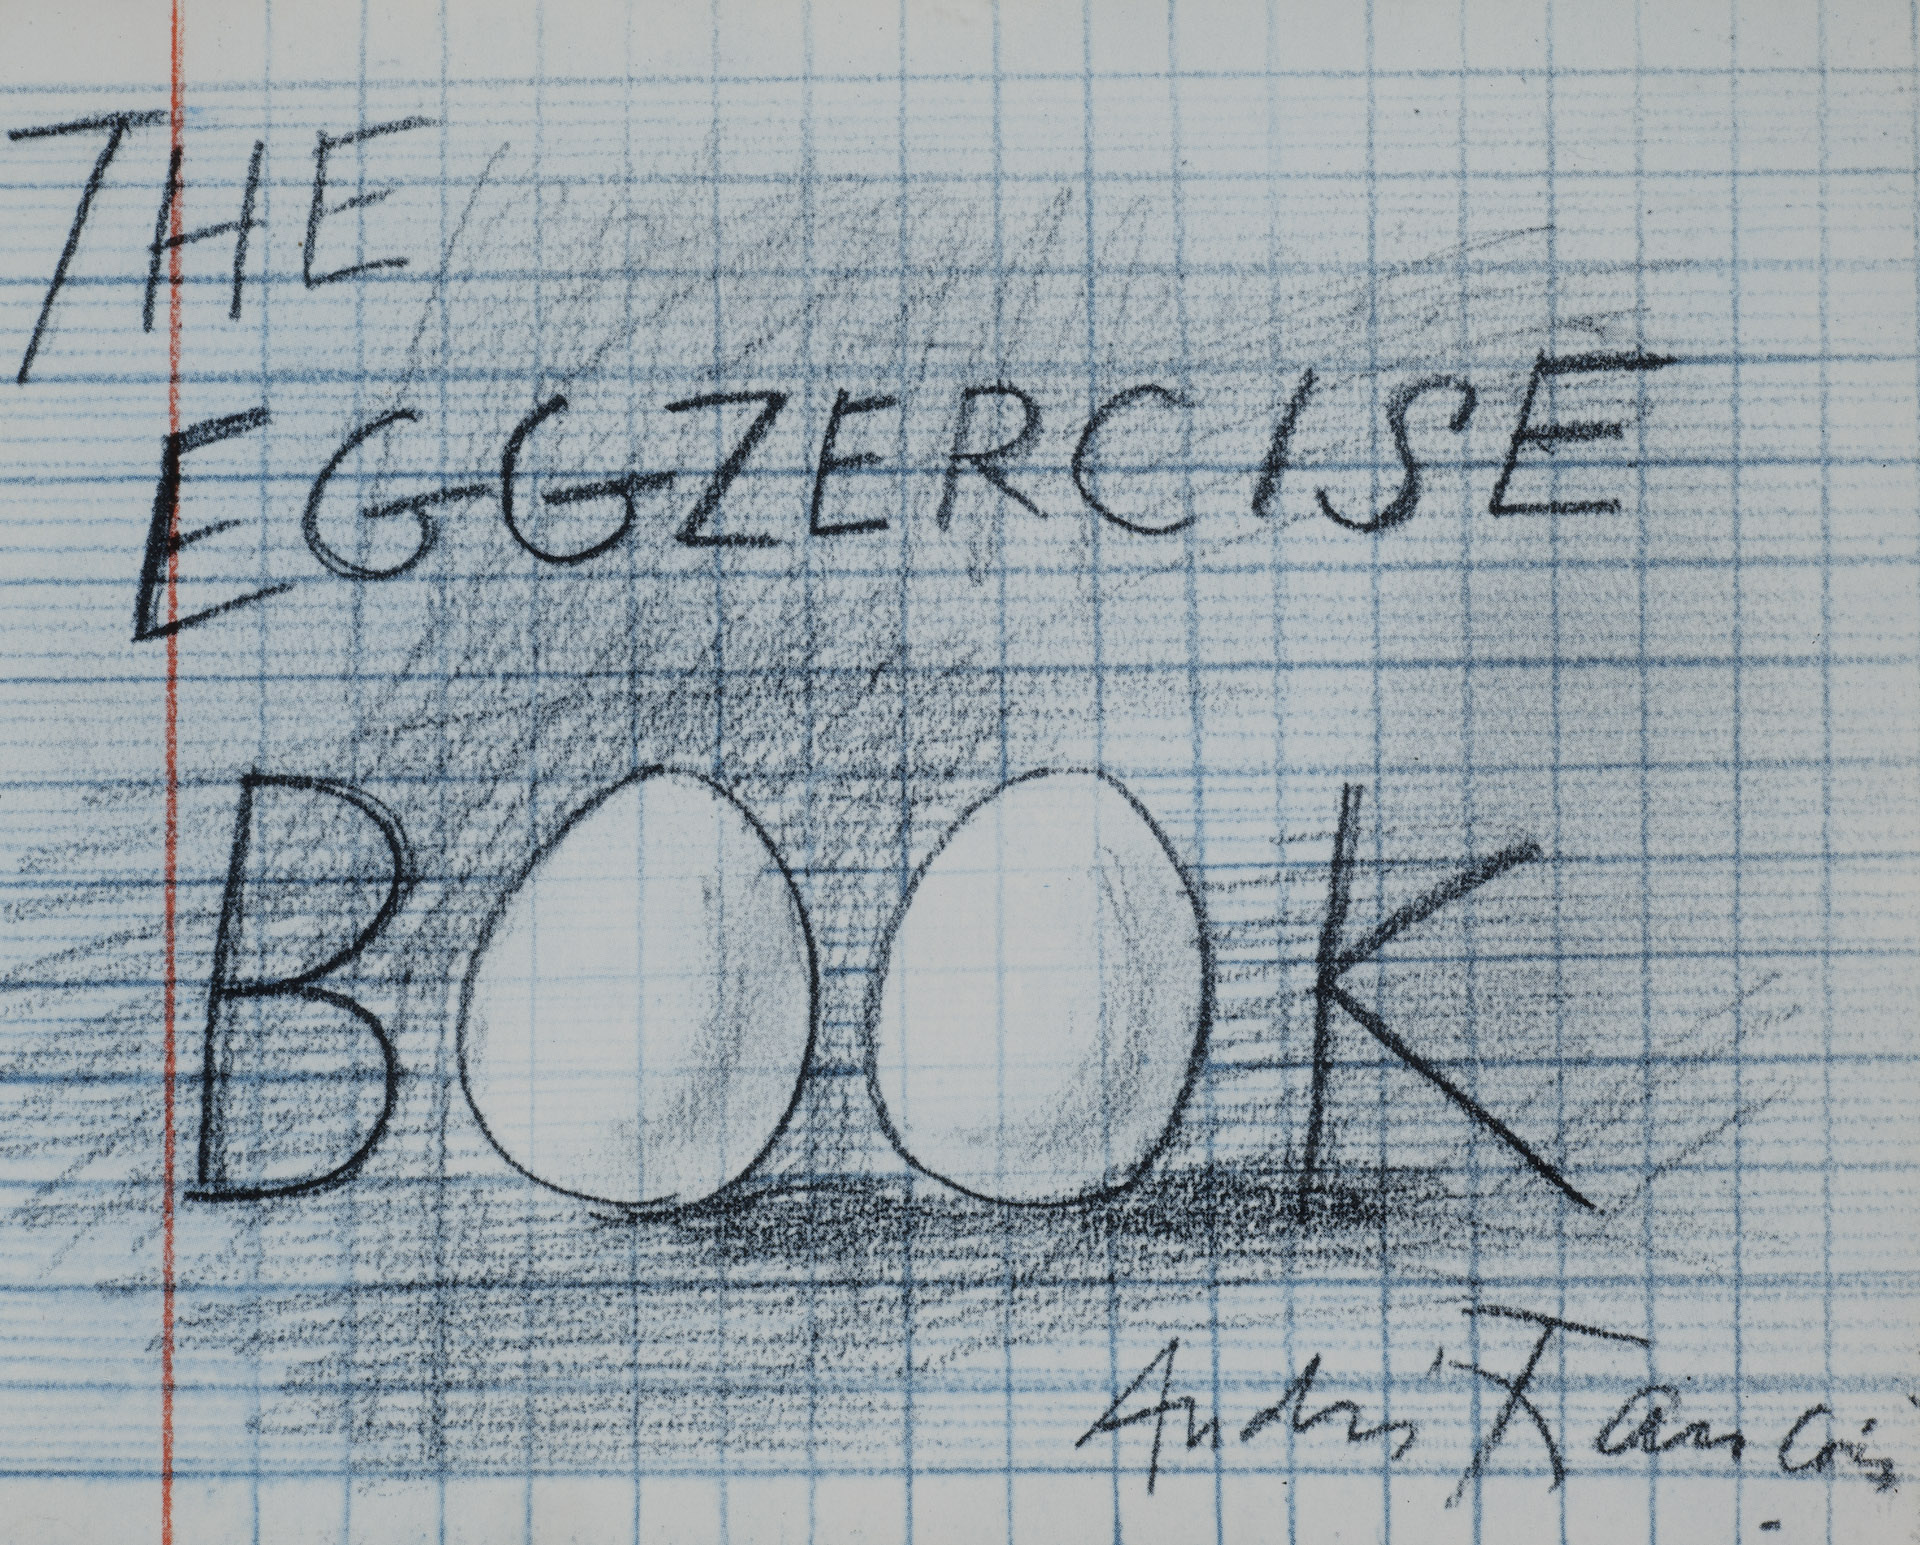 THE
EGGZERCISE
BOOK
André François